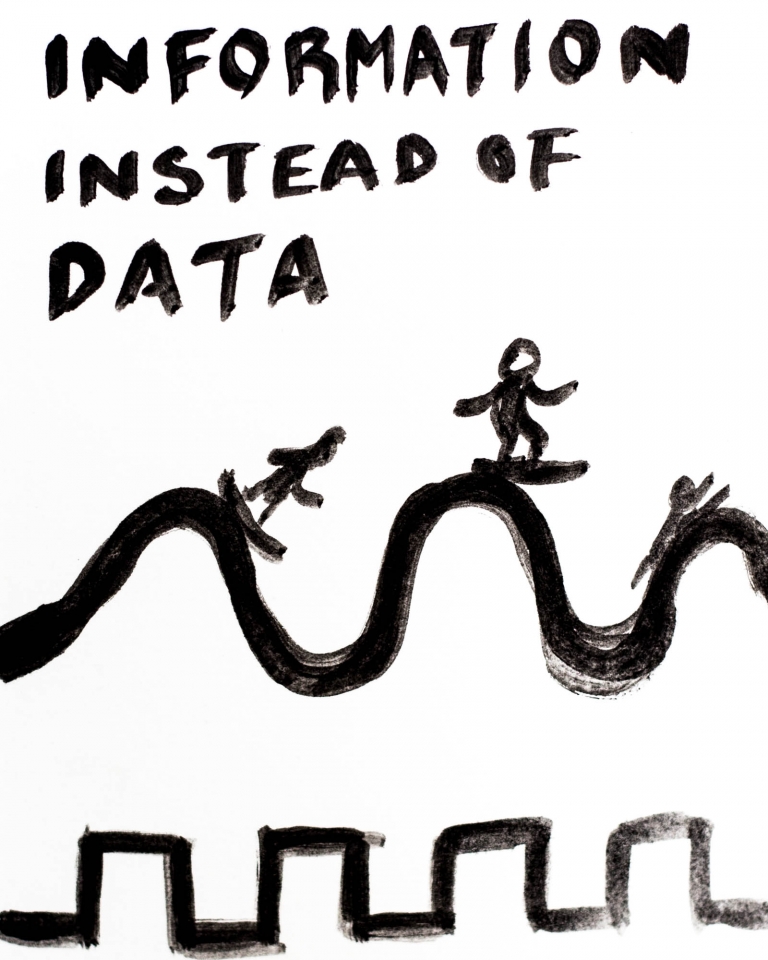 INFORMATION
INSTEAD OF
DATA